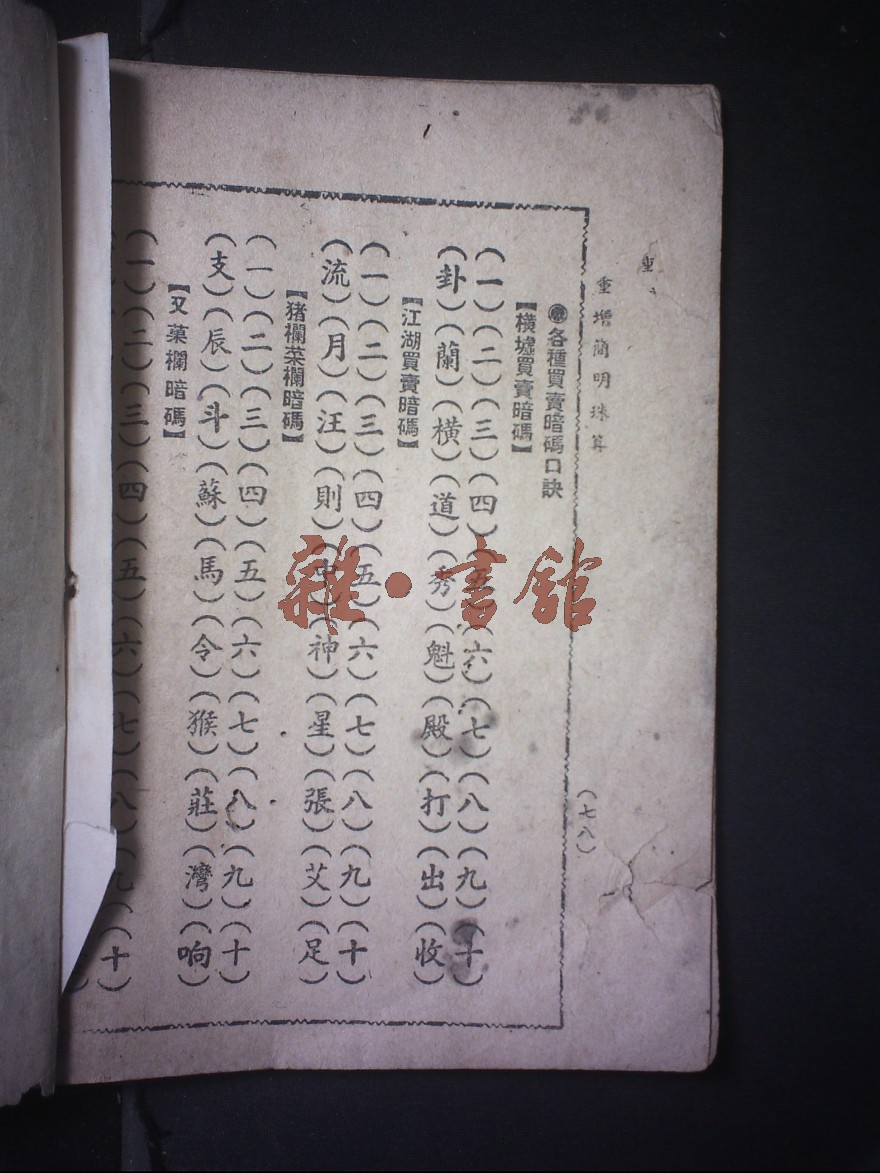 重增簡明珠算
(七八)
各種買賣暗碼口訣
【橫墟買賣暗碼】
(一)(二)(三)(四)(五)(六)(七)(八)(九)(十)
(卦)(蘭)(橫)(道)(秀)(魁)(殿)(打)(出)(收)
【江湖買賣暗碼】
(一)(二)(三)(四)(五)(六)(七)(八)(九)(十)
(流)(月)(汪)(則)(中)(神)(星)(張)(艾)(足)
【猪欄菜欄暗碼】
(一)(二)(三)(四)(五)(六)(七)(八)(九)(十)
(支)(辰)(斗)(蘇)(馬)(令)(猴)(莊)(灣)(响)
【又菓欄暗碼】
(一)(二)(三)(四)(五)(六)(七)(八)(九)(十)
雜·書館